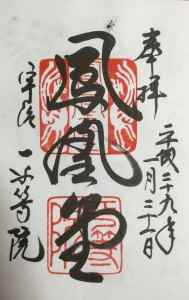 奉拝
平成二十九年
一月三十一日
鳳凰堂
宇治
平等院